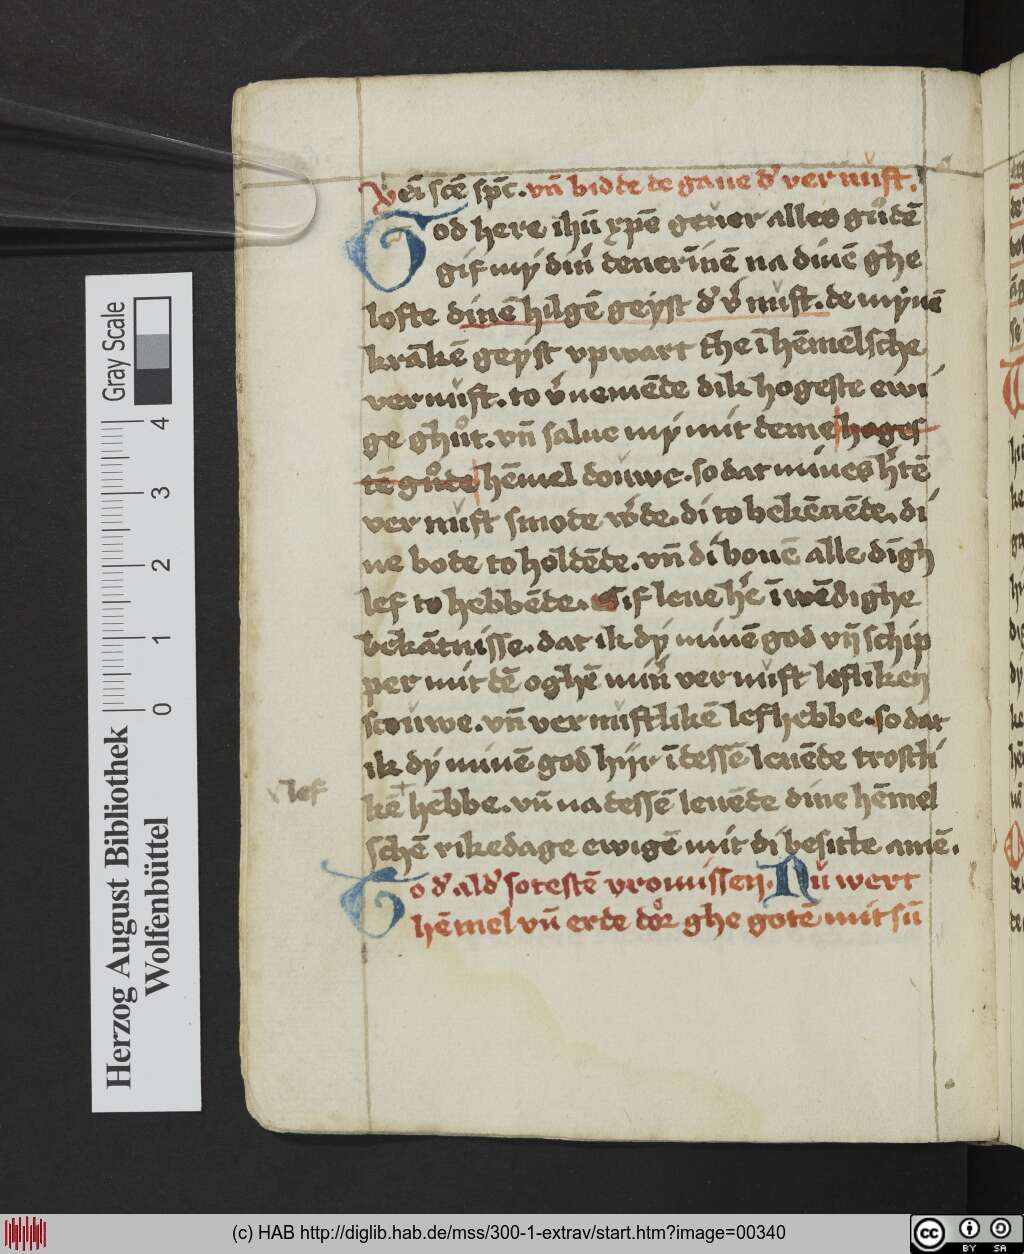 vēi scē spc̄. vn̄ bidde de gaue d' ver nuft.
God here ihū xpē geuer alles gůdē
gif my din̄ denerīnē na dinē ghe
lofte dinē hilgē geyst d' v' nuft. de mynē
krākē geyst vpwart the ī hēmelsche
ver nuft. to v'nemēde dik hogeste ewi
ge ghůt. vn̄ salue my mit deme hoges
tē gůde hēmel douwe. so dat mines h'tē
ver nuft mote w'de. di to bekēnēde. di
ne bode to holdēde. vn̄ di bouē alle dīgh
lef to hebbēde. Gif leue h'e ī wēdighe
bekātnisse. dat ik dy minē god vn̄ schip
per mit dē oghē min̄ ver nuft lefliken
scouwe. vn̄ ver nuftlikē lef hebbe. so dat
ik dy minē god hijr ī dessē leuēde trostli
lef
kē hebbe. vn̄ na dessē leuēde dine hēmel
schē rikedage ewigē mit di besitte amē.
To d' ald' sotestē vromissen. Nu wert
hēmel vn̄ erde dor ghe gotē mit sū
Gray Scale
0 1 2 3 4
Herzog August Bibliothek
Wolfenbüttel
(c) HAB http://diglib.hab.de/mss/300-1-extrav/start.htm?image=00340
cc BY SA